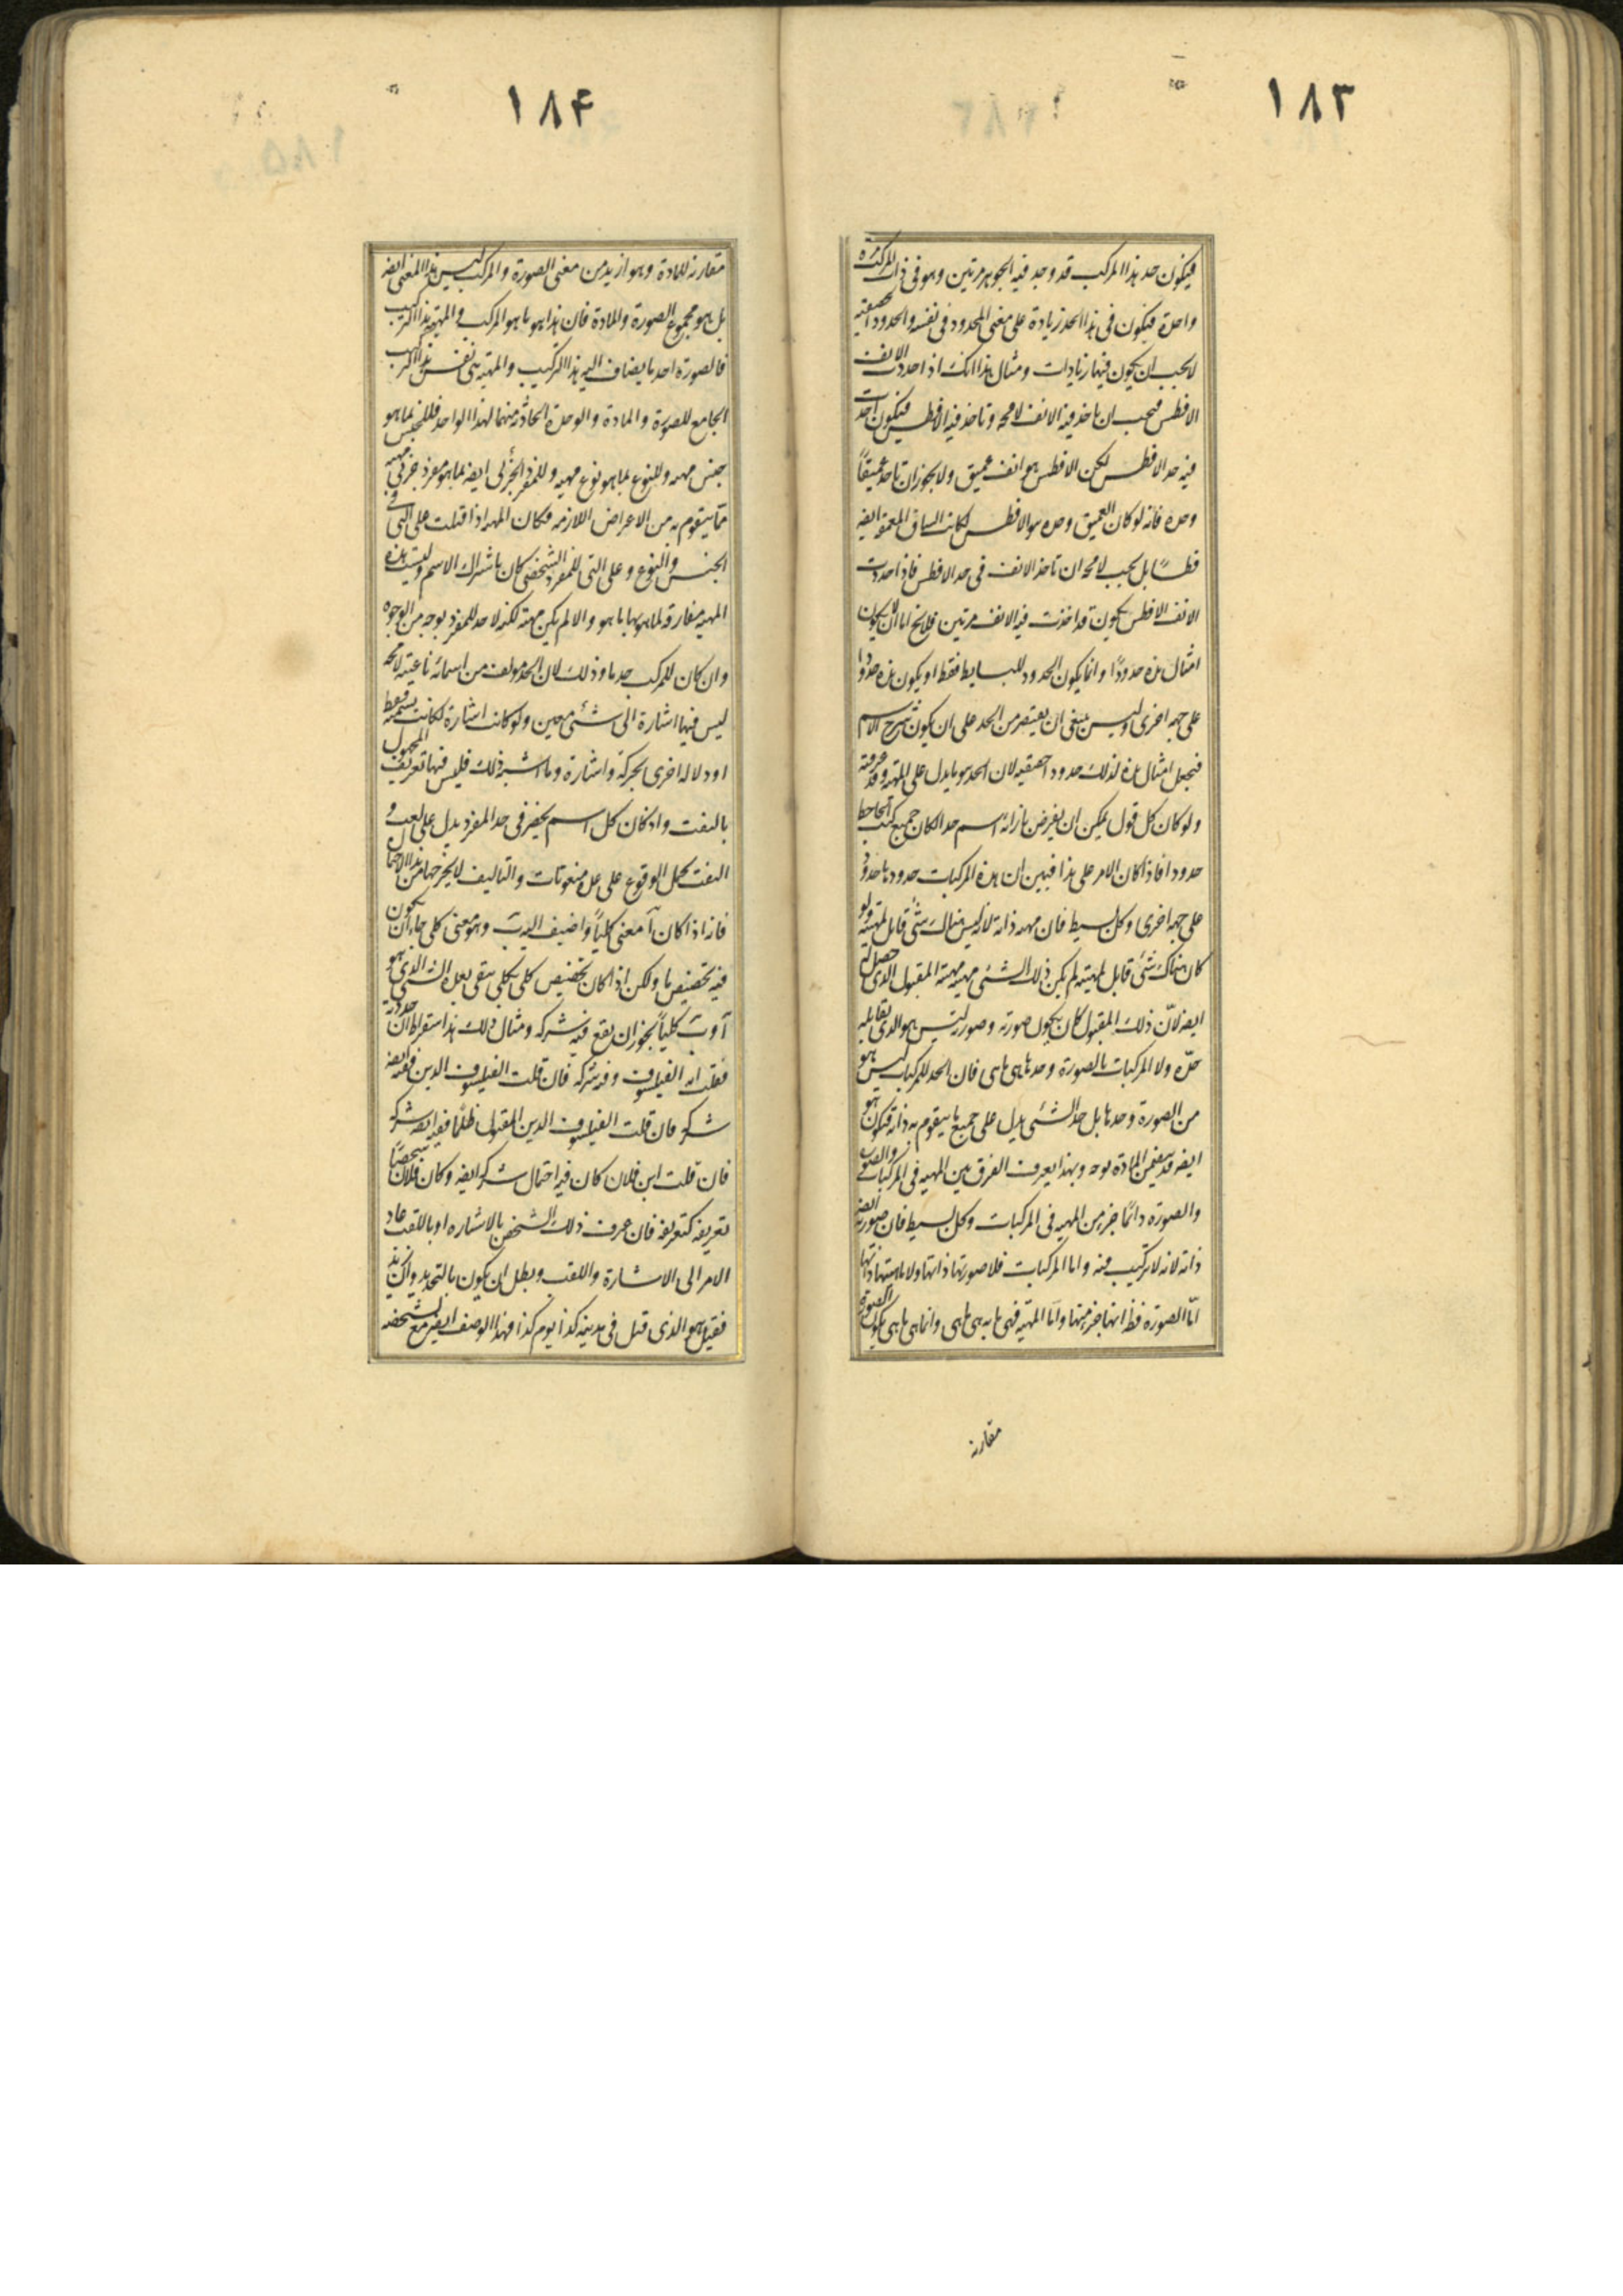 ١٨٣
فيكون حد هذا المركب قد وجد فيه الجوهر مرتين وهو في ذات المركب مرة
واحدة فيكون في هذا الحد زيادة على معنى المحدود في نفسه والحدود الحقيقية
لا يجب ان يكون فيها زيادات ومثال هذا انك اذا حددت الانف
الافطس فيجب ان تاخذ فيه الانف لا محه وتاخذ فيه الافطس فيكون اخذت
فيه حد الافطس لكن الافطس هو انف عميق ولا يجوز ان تاخذ عميقاً
وحده فانه لو كان العميق وحده هو الافطس لكانت الساق المعمقة ايضه
فطساً بل يجب لا محه ان تاخذ الانف في حد الافطس فاذا حددت
الانف الافطس يكون قد اخذت فيه الانف مرتين فلا يخ اما ان لا يكون
امثال هذه حدوداً وانما يكون الحدود للبسايط فقط او يكون هذه حدودا
على جهه اخرى وليس ينبغي ان يقتصر من الحد على ان يكون شرح الاسم
فيجعل امثال هذه لذلك حدودا حقيقيه لان الحد هو ما يدل على المهية وقد عرفته
ولو كان كل قول يمكن ان يفرض بازائه اسم حدا لكان جميع كتب الجاحظ
حدودا فاذا كان الامر على هذا فبين ان هذه المركبات حدودها حدود
على جهه اخرى وكل بسيط فان مهيه ذاته لانه ليس هناك شئ قابل لمهيته ولو
كان هناك شئ قابل لمهيته لم يكن ذلك الشئ مهيه مهية المقبول الذي حصل له
ايضه لانّ ذلك المقبول كان يكون صورته وصورته ليس هو الذي يقابله
حدّه ولا المركبات بالصورة وحدها هي ما هي فان الحد للمركبات ليس هو
من الصورة وحدها بل حد الشئ يدل على جميع ما يتقوم به ذاته فيكون هو
ايضه قد يتضمن المادة بوجه وبهذا يعرف الفرق بين المهيه في المركبات والصورة
والصورة دائماً جزء من المهيه في المركبات وكل بسيط فان صورته ايضه
ذاته لانه لا تركيب فيه واما المركبات فلا صورتها ذاتها ولا ماهيتها ذاتها
امّا الصورة فظ انها جزء منها وامّا المهيّه فهي ما به هي ما هي وانما هي ما هي بكون الصورة
مقارنه
١٨۴
مقارنه للمادة وهو ازيد من معنى الصورة والمركب ليس هذا المعنى ايضه
بل هو مجموع الصورة والمادة فان هذا هو ما هو المركب والمهيّه هذا التركيب
فالصورة احد ما يضاف اليه هذا التركيب والمهيّه هي نفس هذا التركيب
الجامع للصورة والمادة والوحدة الحادثه منهما لهذا الواحد فللجنس بما هو
جنس مهيه وللنوع بما هو نوع مهيه وللمفرد الجزئي ايضه بما هو مفرد جزئي مهيه
ممّا يتقوم به من الاعراض اللازمه فكان المهيه اذا قيلت على التي في
الجنس والنوع وعلى التي للمفرد الشخصي كان باشتراك الاسم وليست هذه
المهيه مفارقه لما هو بها ما هو والا لم يكن مهيته لكنه لا حد للمفرد بوجه من الوجوه
وان كان للمركب حد ما وذلك لان الحد مولف من اسماء ناعتيه لا محه
ليس فيها اشارة الى شئ معين ولو كانت اشارة لكانت تسميه فقط
او دلاله اخرى بحركة واشارة وما اشبه ذلك فليس فيها تعريف المجهول
بالنعت واذ كان كل اسم يحضر في حد المفرد يدل على نعت و
النعت يحتمل الوقوع على عدة منعوتات والتاليف لا يخرجها من هذا الاحتمال
فانه اذا كان آ معنى كلياً واضيف اليه بَ وهو معنى كلى جاز ان يكون
فيه تخصيص ما ولكن اذا كان تخصيص كلى بكلى يبقى بعده الشئ الذي هو
آ وبَ كلياً يجوز ان يقع فيه شركه ومثال ذلك هذا سقراط ان حددته
فقلت انه الفيلسوف ففيه شركه فان قلت الفيلسوف الدين ففيه ايضه
شركه فان قلت الفيلسوف الدين المقتول ظلماً ففيه ايضه شركه
فان قلت ابن فلان كان فيه احتمال شركه ايضه وكان فلان شخصاً
تعريفه كتعريفه فان عرف ذلك الشخص بالاشاره او باللقب عاد
الامر الى الاشارة واللقب وبطل ان يكون بالتحديد وان زيد
فقيل هو الذي قتل في مدينه كذا يوم كذا فهذا الوصف ايضه مع تشخصه